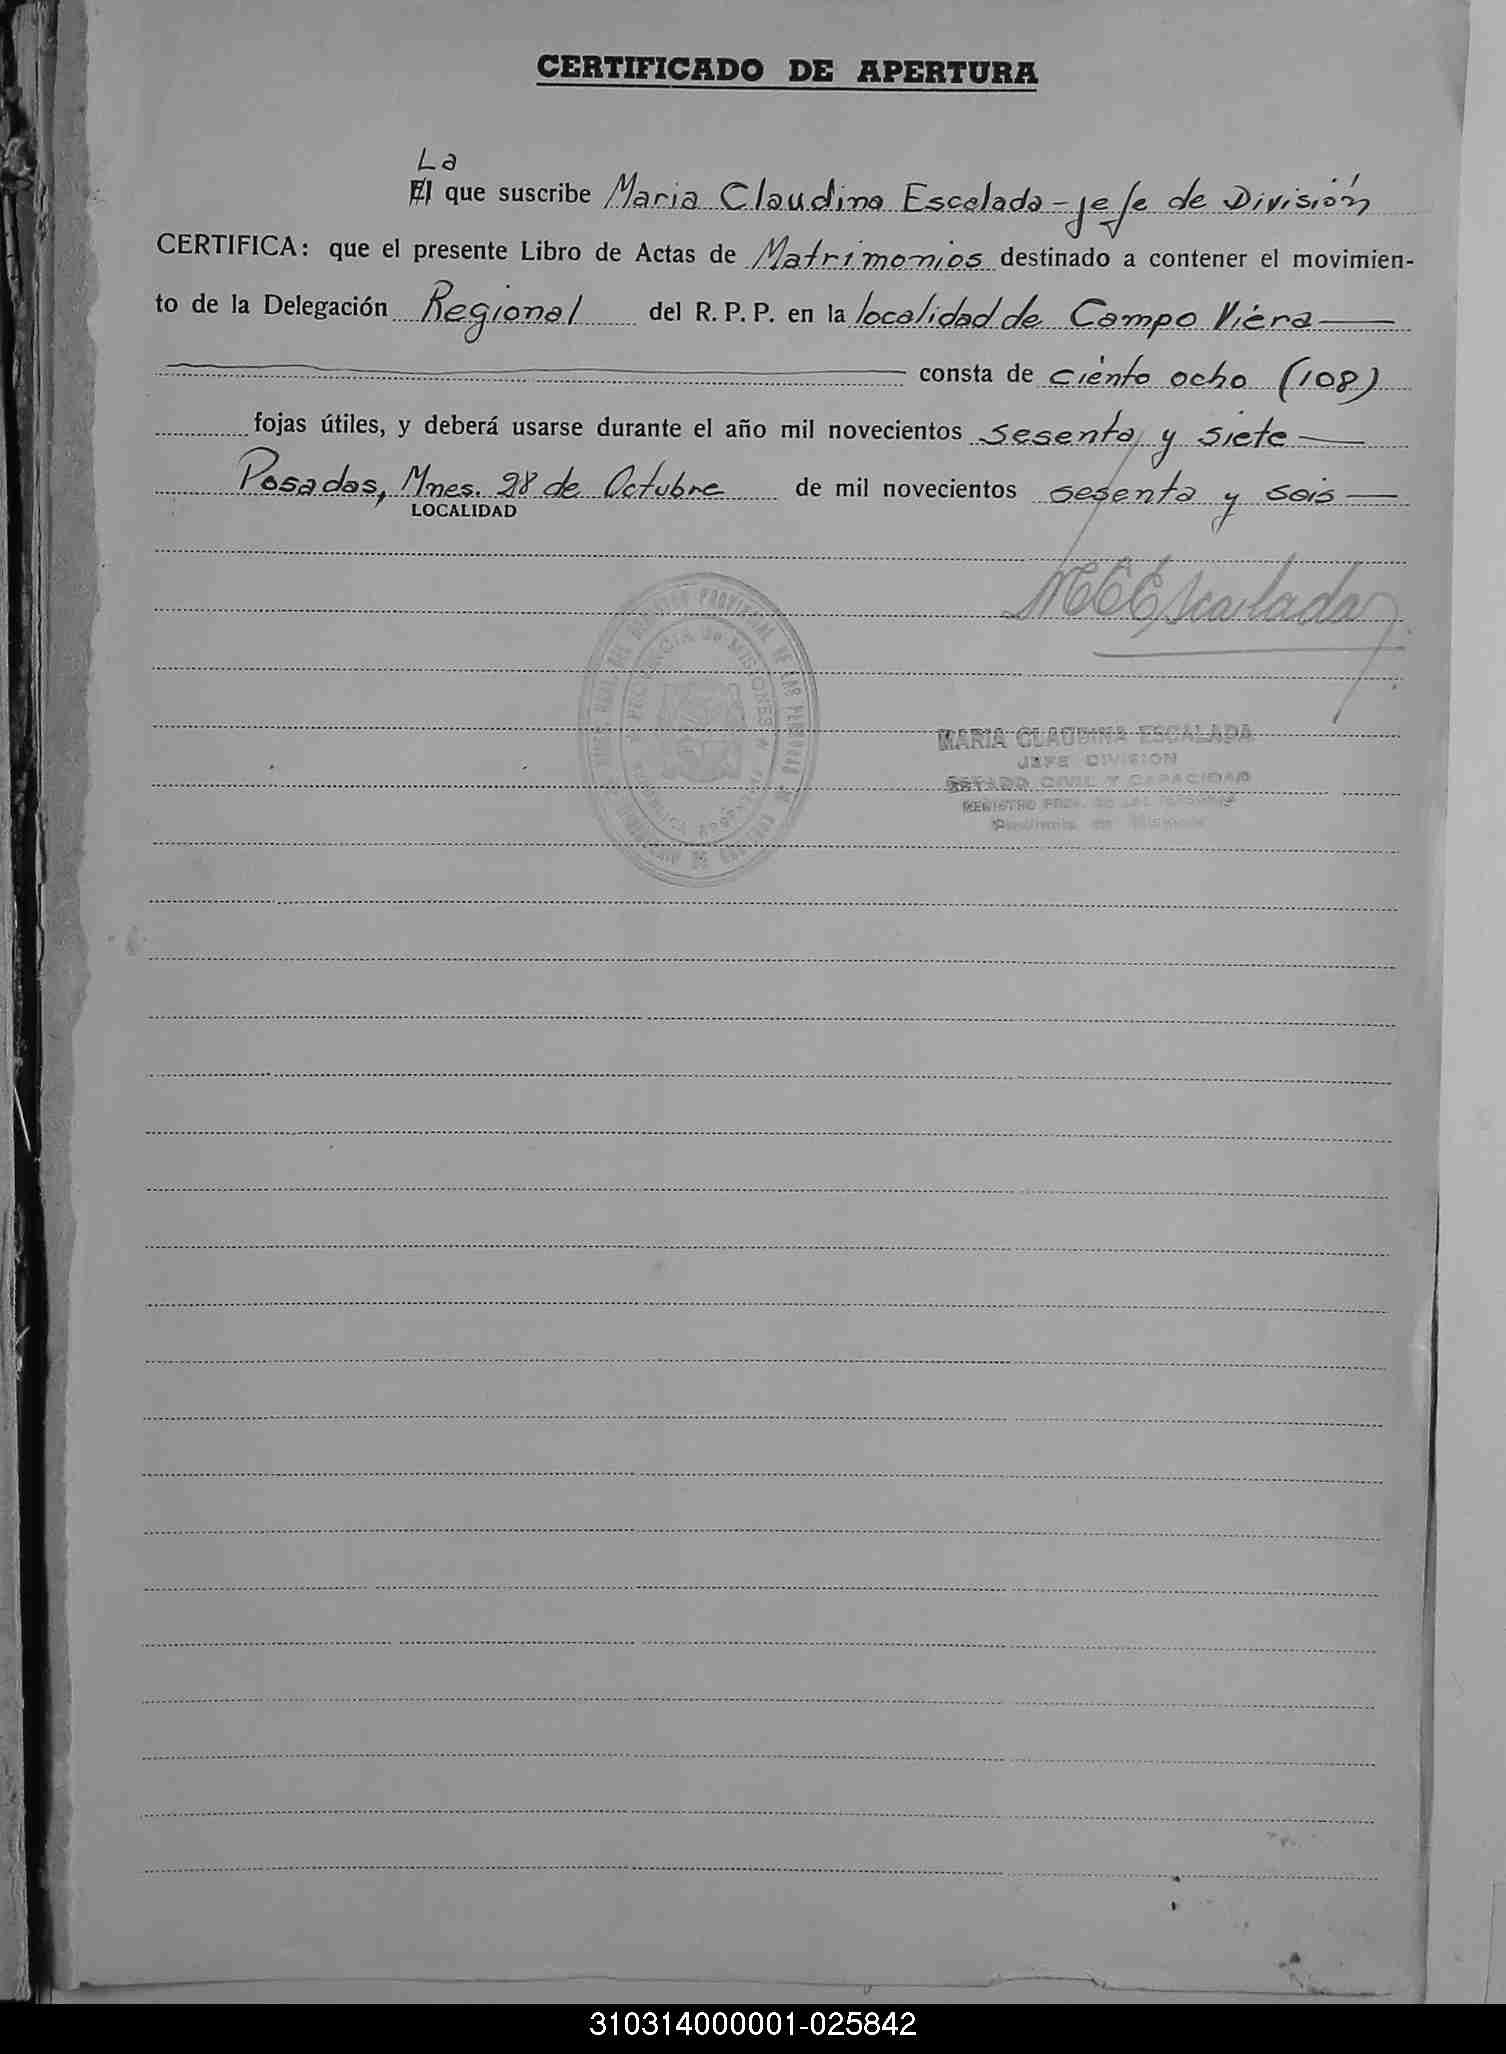 CERTIFICADO DE APERTURA
La
El que suscribe Maria Claudina Escalada - jefe de División
CERTIFICA: que el presente Libro de Actas de Matrimonios destinado a contener el movimien-
to de la Delegación Regional del R. P. P. en la localidad de Campo Viera
consta de ciento ocho (108)
fojas útiles, y deberá usarse durante el año mil novecientos sesenta y siete
Posadas, Mnes. 28 de Octubre de mil novecientos sesenta y seis
LOCALIDAD
MCEscalada
PROVINCIA DE MISIONES
REPUBLICA ARGENTINA
MARIA CLAUDINA ESCALADA
JEFE DIVISION
ESTADO CIVIL Y CAPACIDAD
REGISTRO PROV. DE LAS PERSONAS
Provincia de Misiones
310314000001-025842